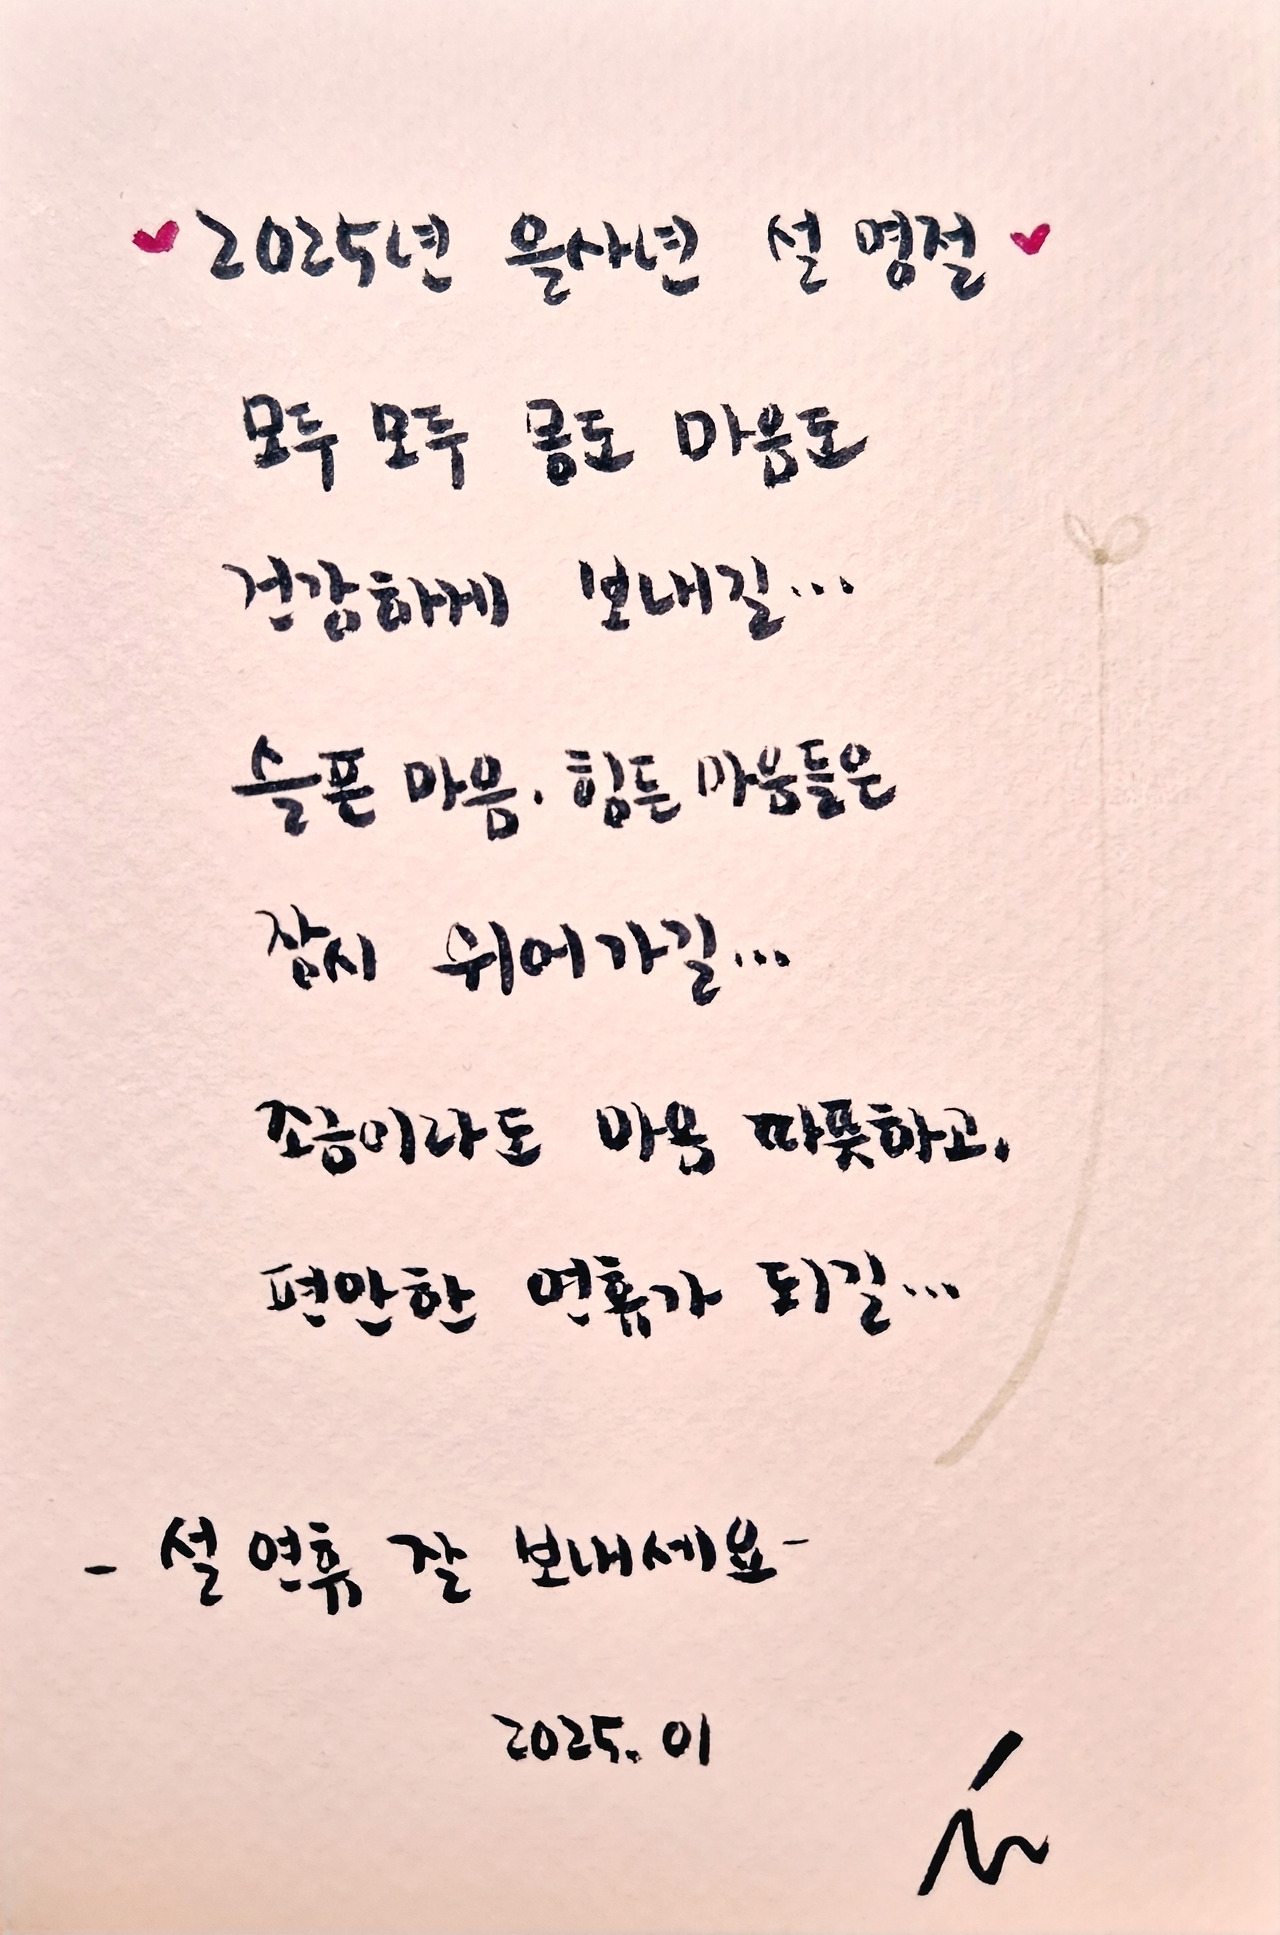 2025년 을사년 설 명절
모두 모두 몸도 마음도
건강하게 보내길...
슬픈 마음, 힘든 마음들은
잠시 쉬어가길...
조금이라도 마음 따뜻하고,
편안한 연휴가 되길...
- 설 연휴 잘 보내세요-
2025. 01